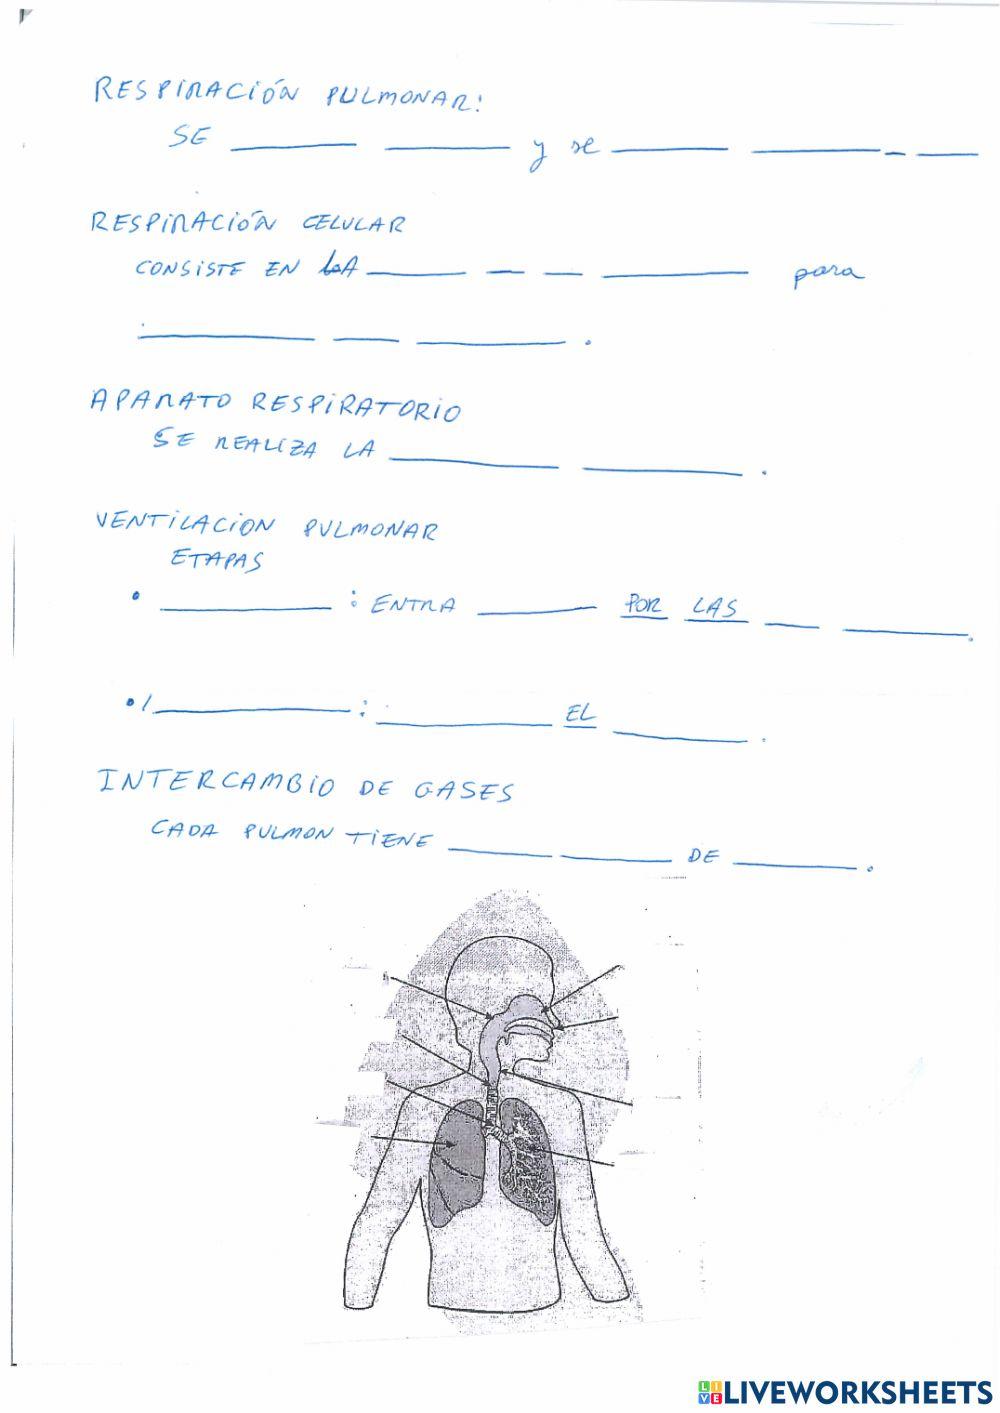 RESPIRACIÓN PULMONAR:
SE ______ ______ y se ______ ______ __ ___
RESPIRACIÓN CELULAR
CONSISTE EN LA ______ __ __ ______ para
______ ___ ______.
APARATO RESPIRATORIO
SE REALIZA LA ______ ______.
VENTILACION PULMONAR
ETAPAS
• ______: ENTRA ______ POR LAS ___ ______.
• ______: ______ EL ______.
INTERCAMBIO DE GASES
CADA PULMON TIENE ______ ______ DE ______.
LIVEWORKSHEETS